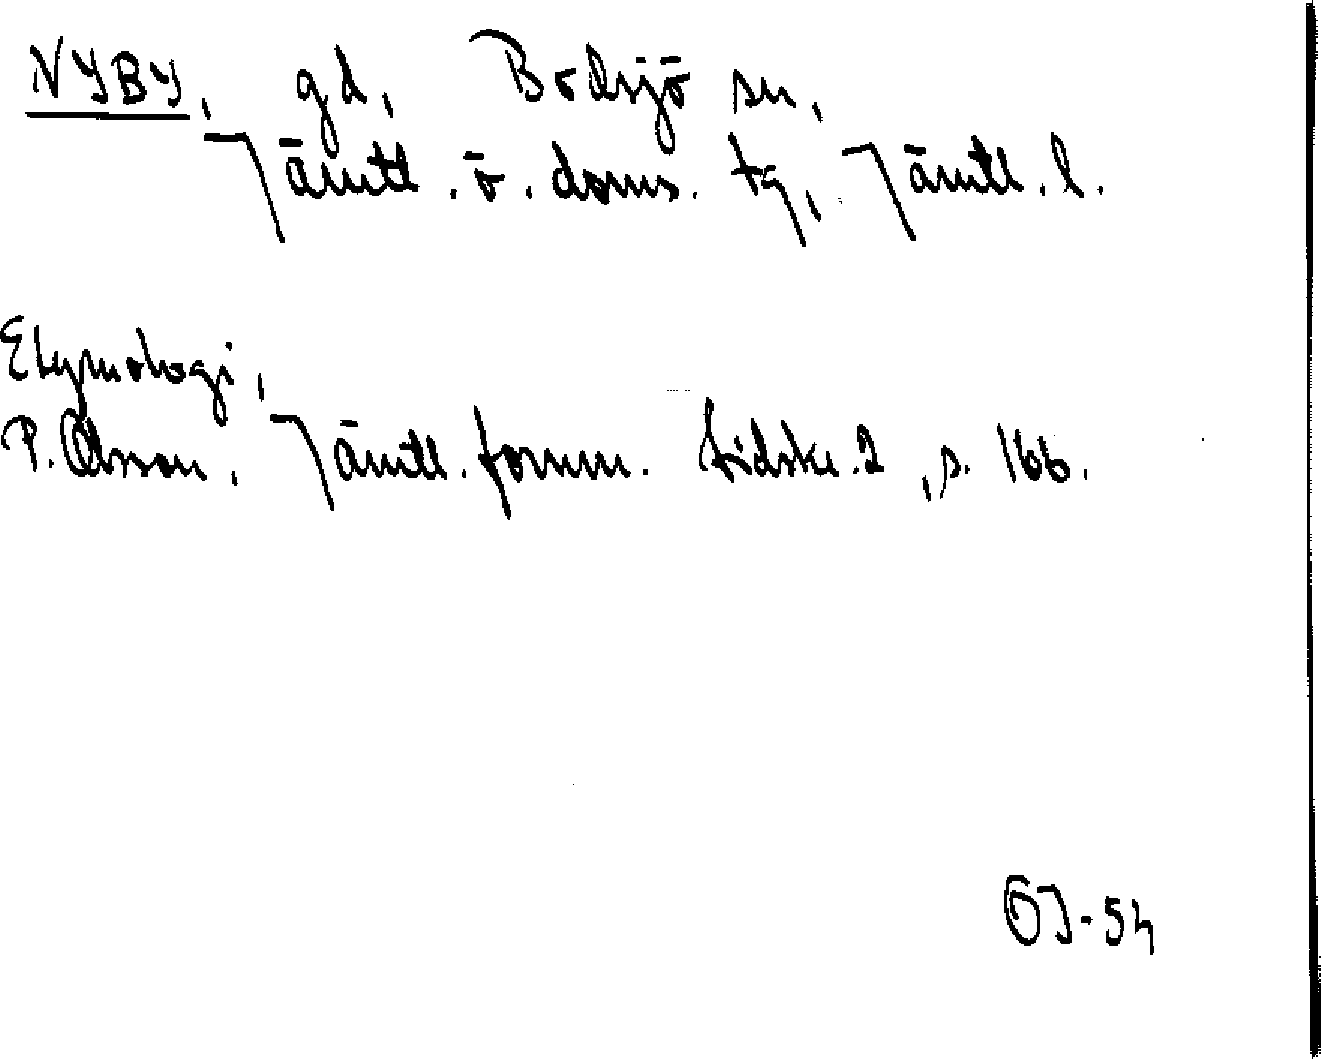 NYBY, gd, Bodsjö sn,
Jämtl. ö. doms. tg, Jämtl. l.
Etymologi,
P. Olsson, Jämtl. fornm. tidskr. 2, s. 166.
OJ-54